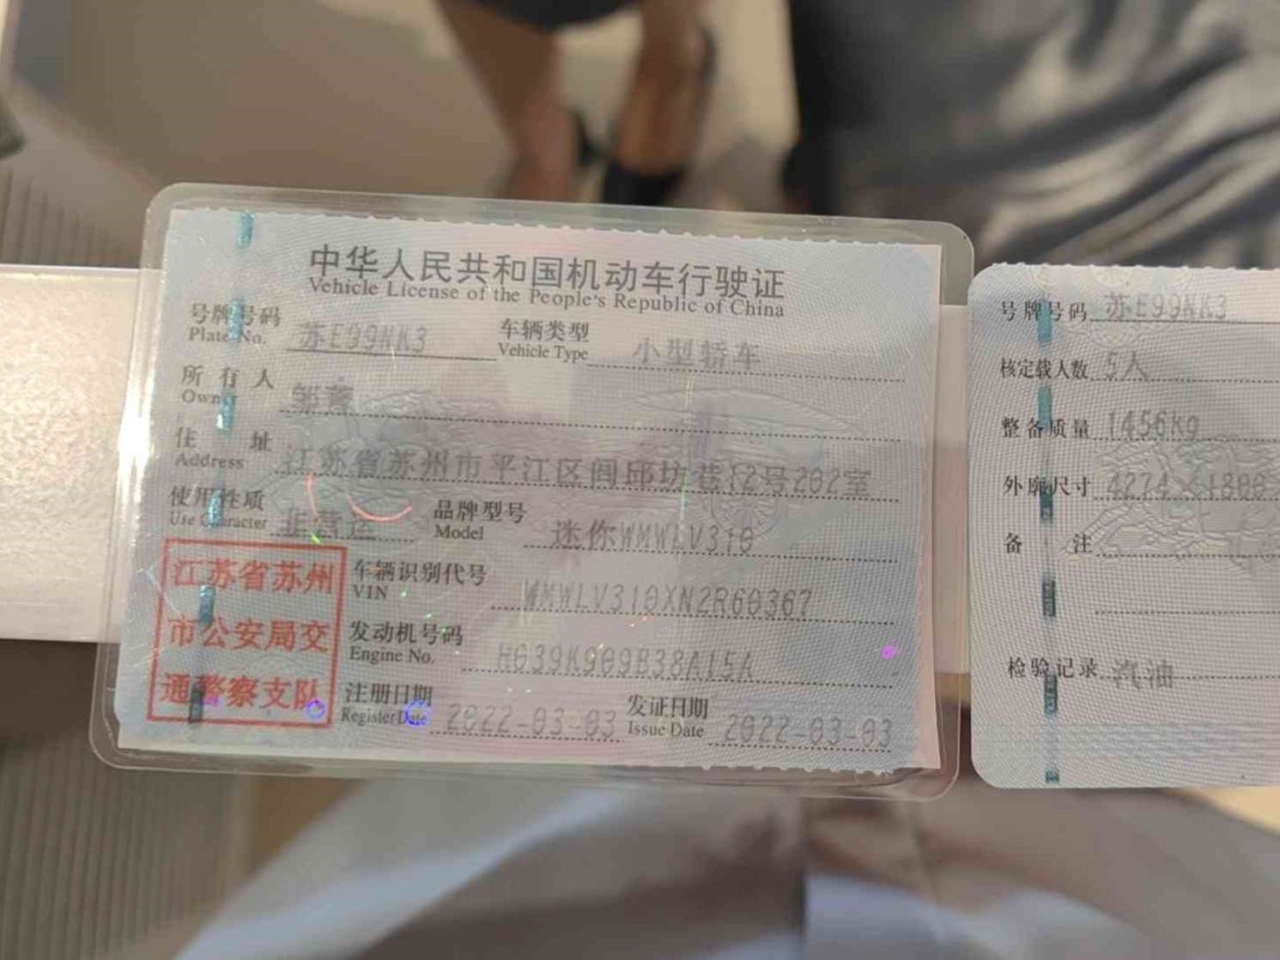 中华人民共和国机动车行驶证
Vehicle License of the People's Republic of China
号牌号码 苏E99NK3 车辆类型 小型轿车
Plate No. Vehicle Type
所有人 邹蓉
Owner
住址 江苏省苏州市平江区闾邱坊巷12号202室
Address
使用性质 非营运 品牌型号 迷你WMWLV310
Use Character Model
江苏省苏州
市公安局交
通警察支队
车辆识别代号 WMWLV310XN2R60367
VIN
发动机号码 H039K909B38A15A
Engine No.
注册日期 2022-03-03 发证日期 2022-03-03
Register Date Issue Date
号牌号码 苏E99NK3
核定载人数 5人
整备质量 1456kg
外廓尺寸 4274×1800
备注
检验记录 汽油